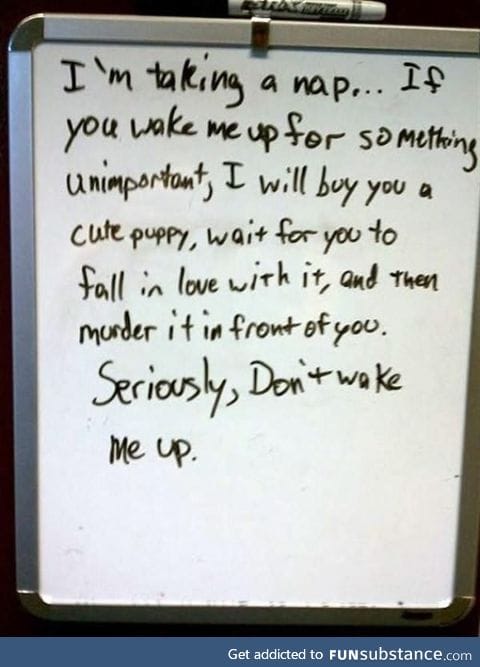 I'm taking a nap... If
you wake me up for something
unimportant, I will buy you a
cute puppy, wait for you to
fall in love with it, and then
murder it in front of you.
Seriously, Don't wake
me up.
Get addicted to FUNsubstance.com